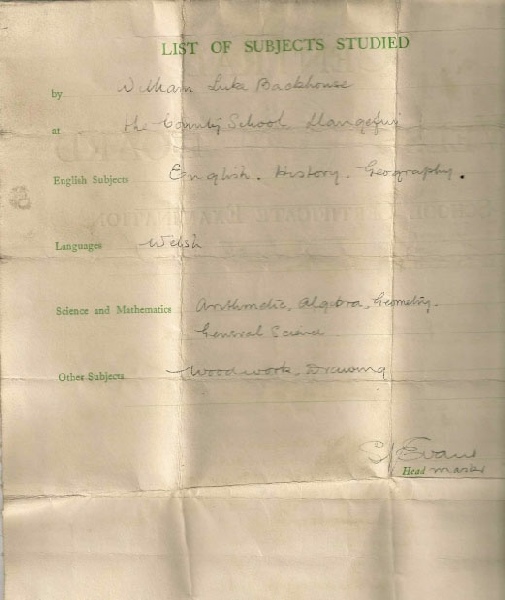 LIST OF SUBJECTS STUDIED
by William Luke Backhouse
at the County School Llangefni
English Subjects English. History. Geography.
Languages Welsh
Science and Mathematics Arithmetic, Algebra, Geometry.
General Science
Other Subjects Woodwork, Drawing
Evans
Head master